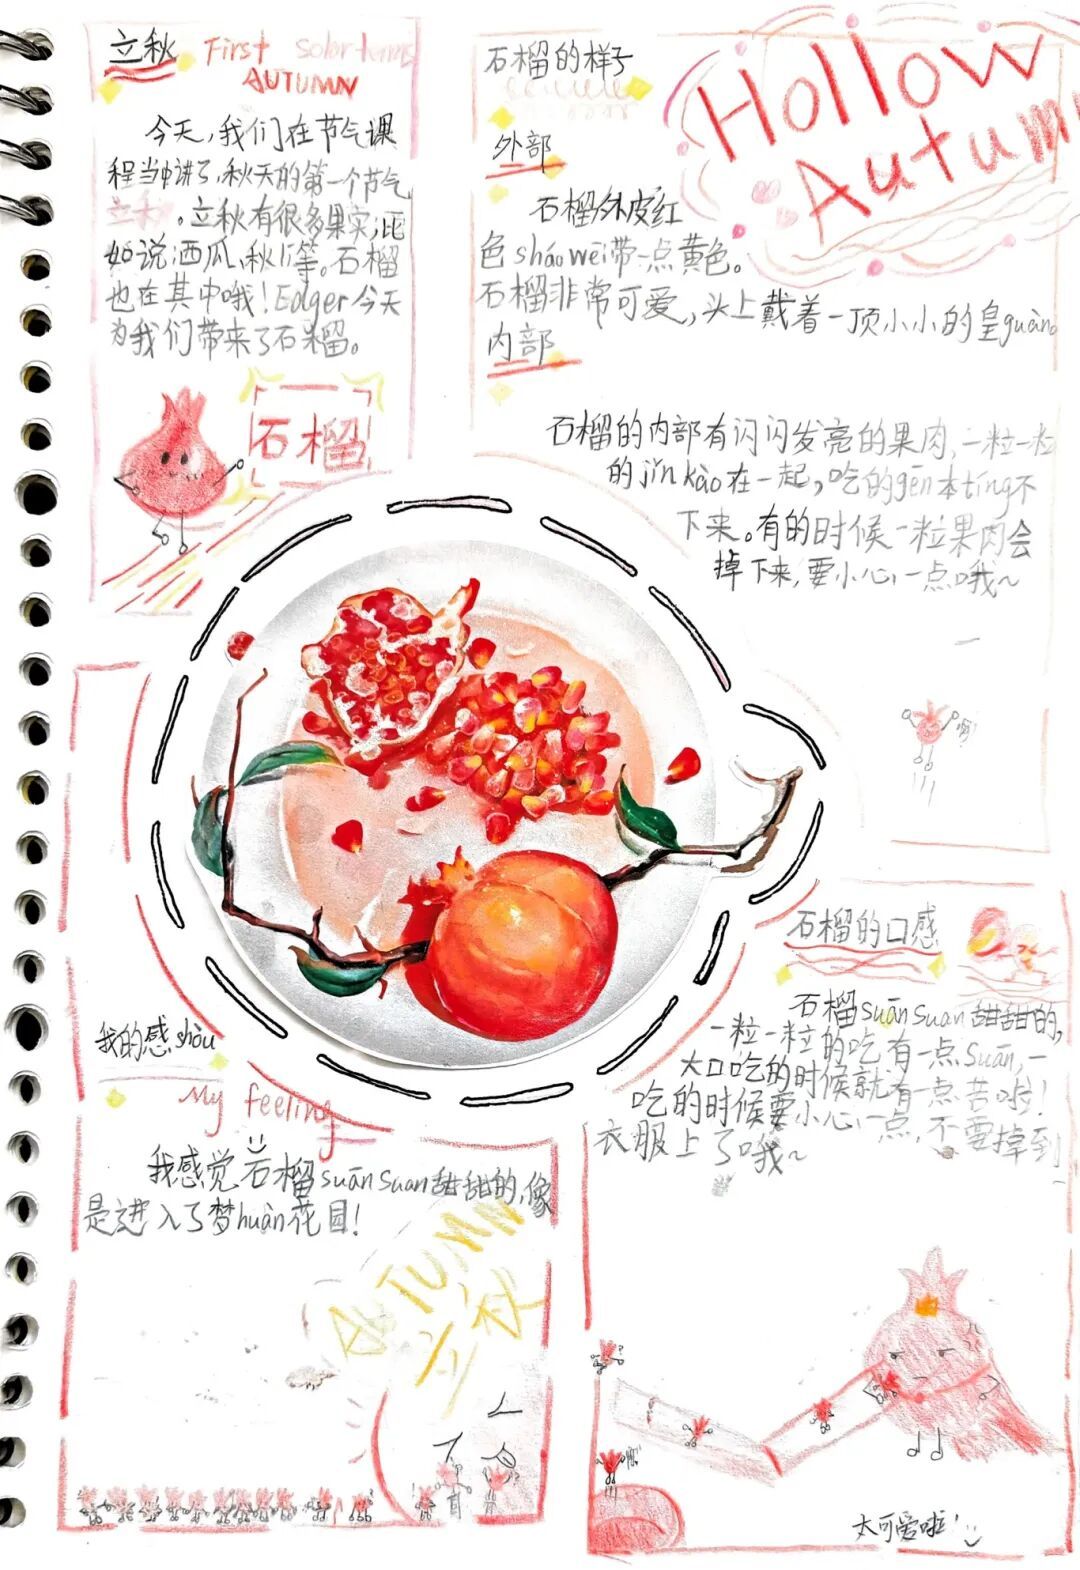 立秋 First solar terms
AUTUMN
今天，我们在节气课
程当中讲了，秋天的第一个节气
立秋。立秋有很多果实，比
如说西瓜、秋li等。石榴
也在其中哦！Edger今天
为我们带来了石榴。
石榴
石榴的样子
外部
石榴外皮红
色shāo wēi带一点黄色。
石榴非常可爱，头上戴着一顶小小的皇guān。
内部
石榴的内部有闪闪发亮的果肉，一粒一粒
的jǐn kào在一起，吃的gēn本tíng不
下来。有的时候一粒果肉会
掉下来，要小心一点哦～
Hollow
Autumn
石榴的口感
石榴suān suan甜甜的，
一粒一粒的吃有一点suān，一
大口吃的时候就有一点苦啦！
吃的时候要小心一点，不要掉到
衣服上了哦～
我的感shòu
My feeling
我感觉石榴suān suan甜甜的，像
是进入了梦huàn花园！
AUTUMN
立秋
太可爱啦！